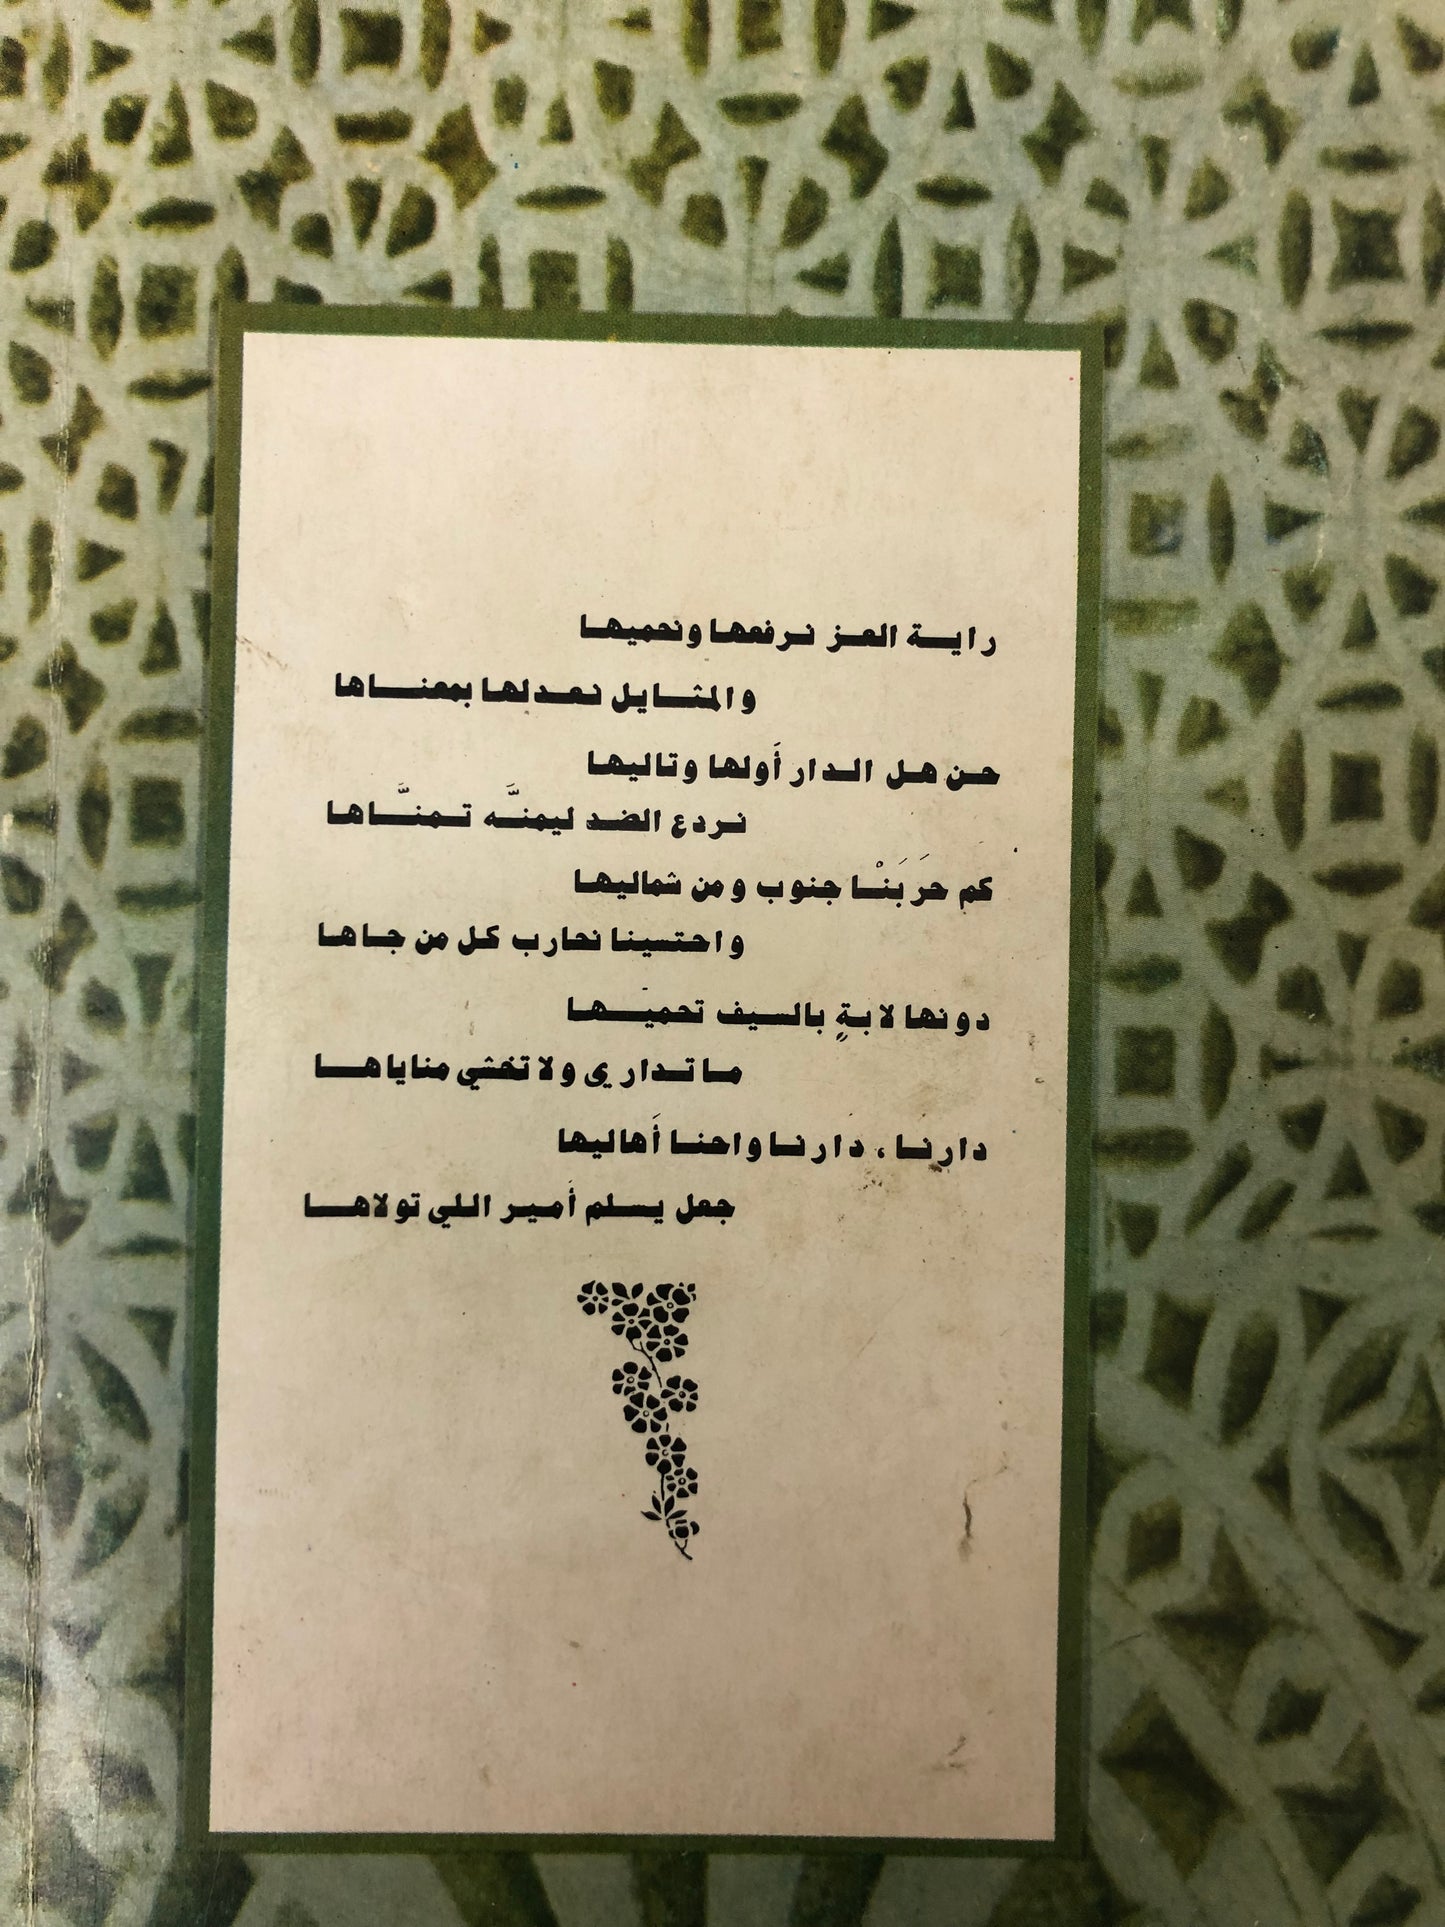 راية العز نرفعها ونحميها
والمثايل نعدلها بمعناها
حن هل الدار أَولها وتاليها
نردع الضد ليمنَّه تمنَّاها
كم حرَبَنْا جنوب ومن شماليها
واحتسينا نحارب كل من جاها
دونها لابةٍ بالسيف تحميها
ما تدارى ولا تخشي مناياها
دارنا، دارنا واحنا أَهاليها
جعل يسلم أَمير اللي تولاها